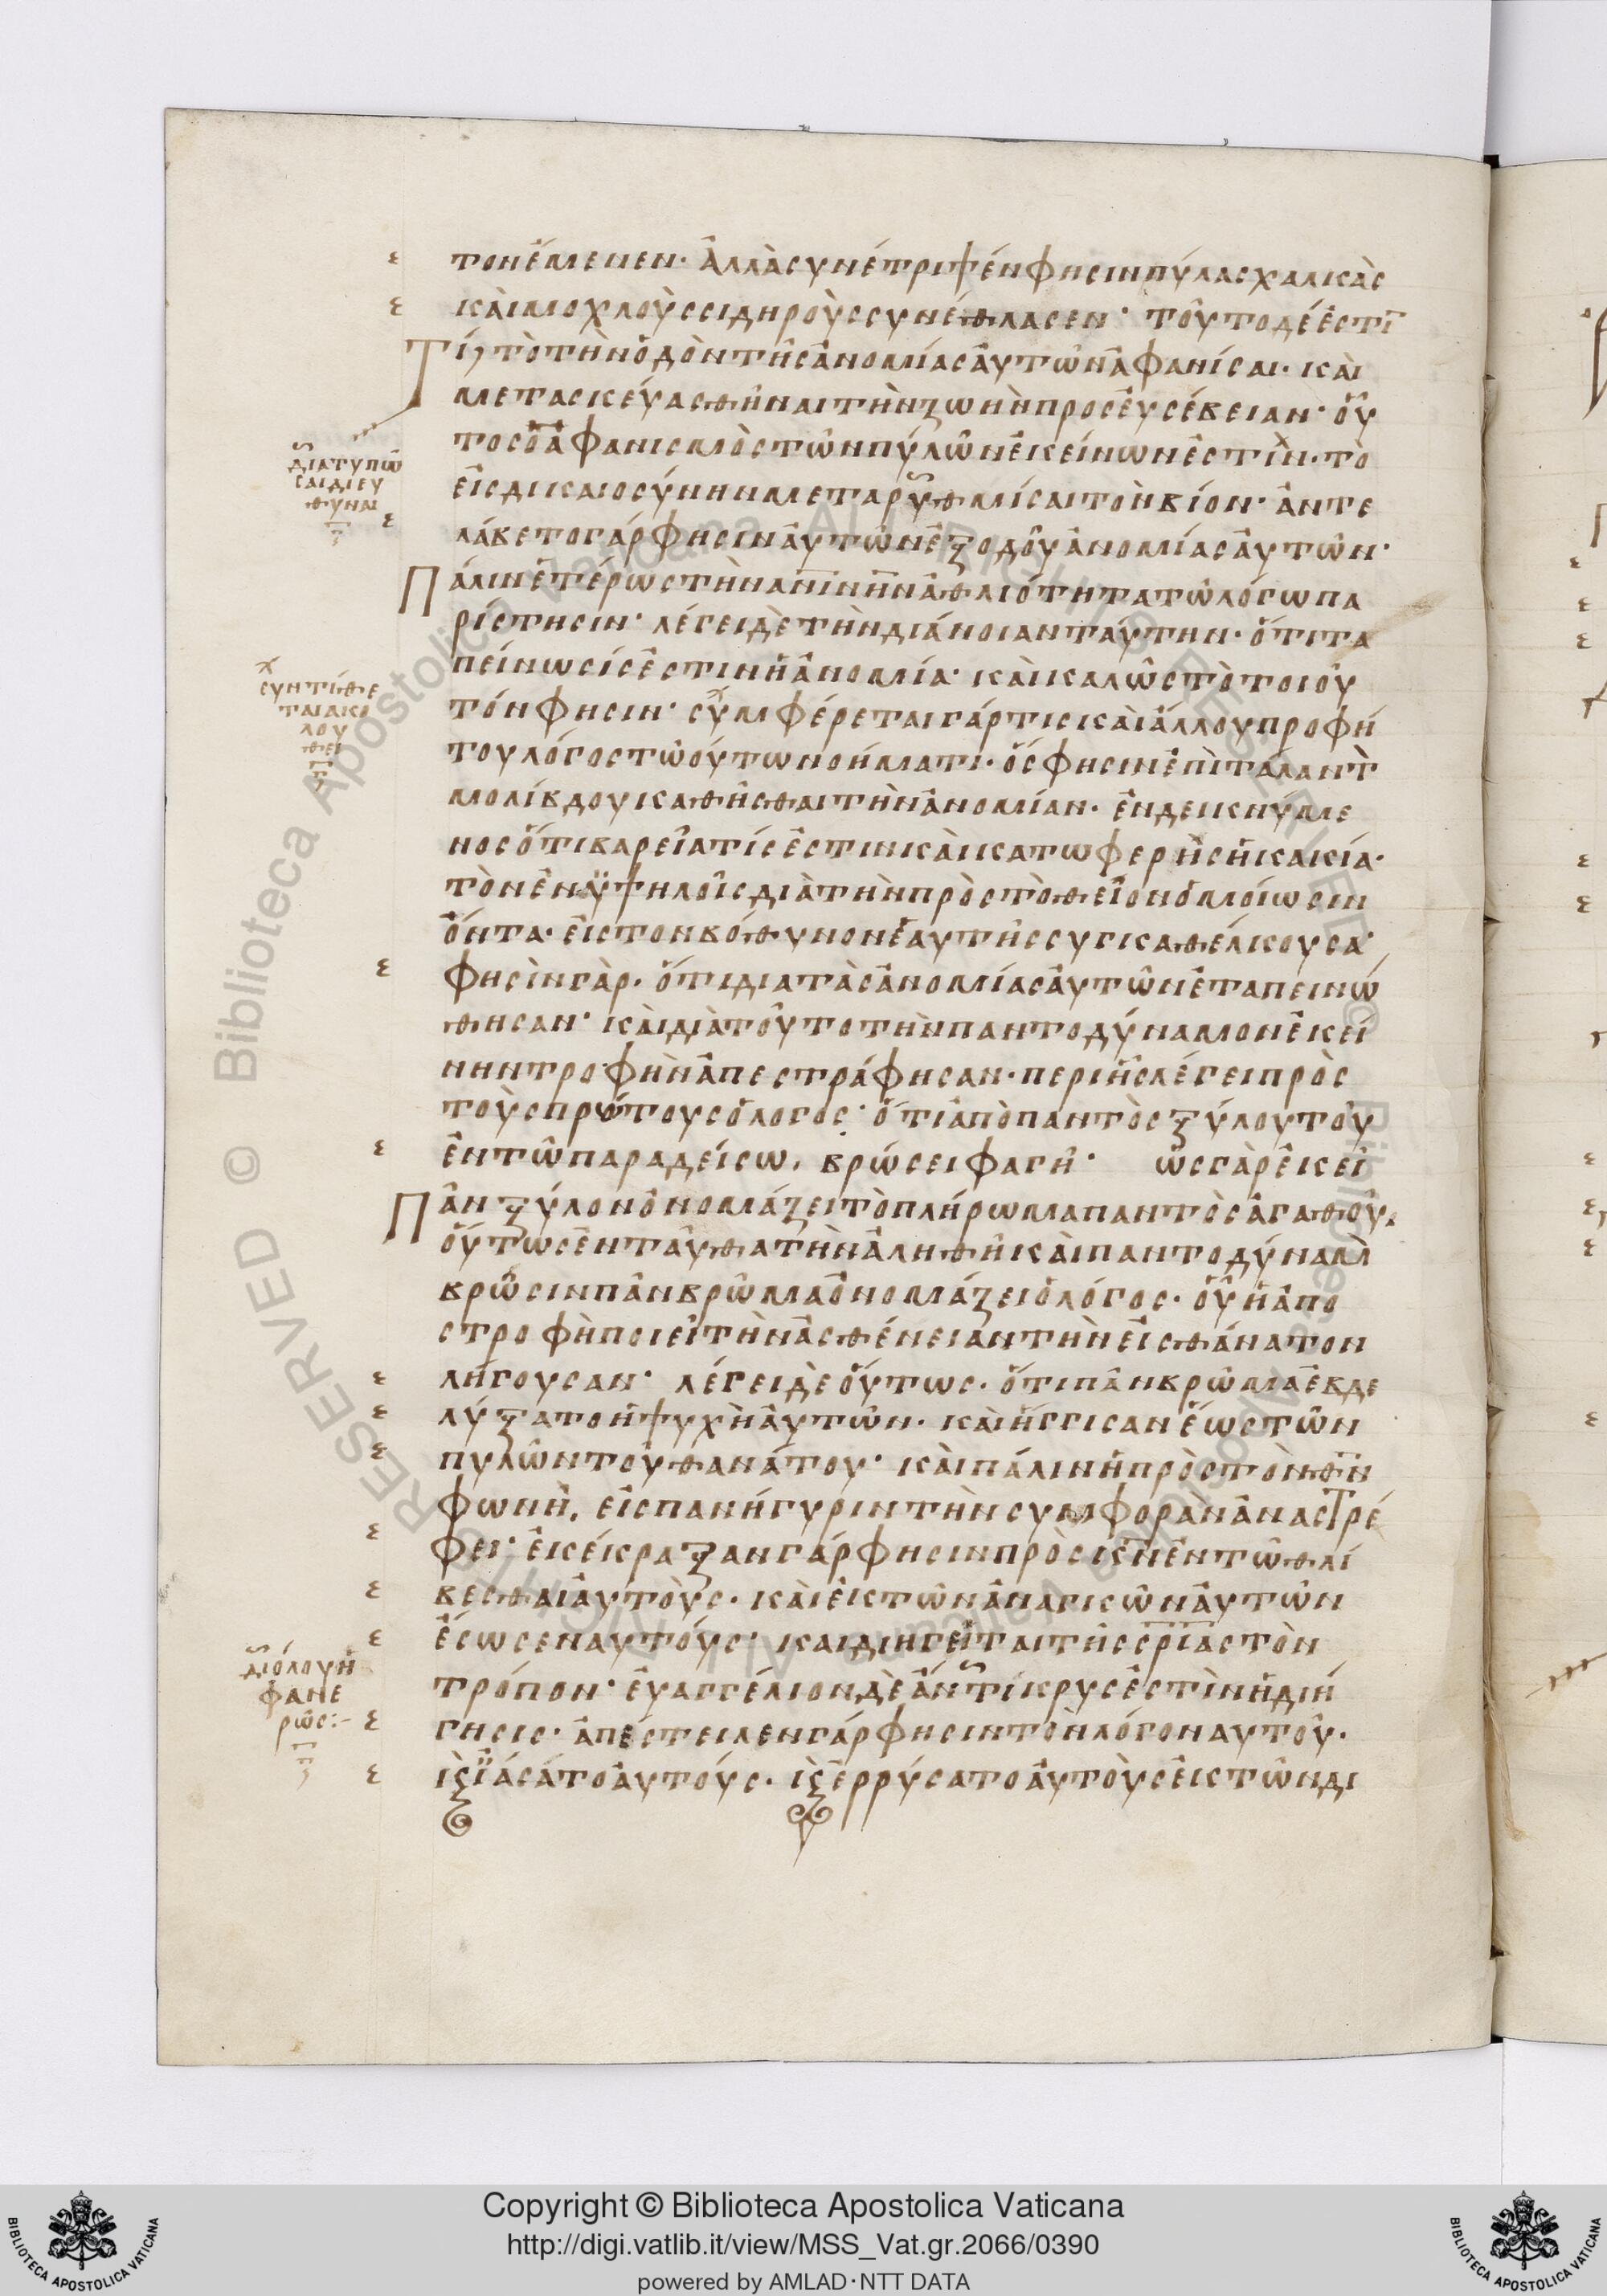 τον ἔμενεν· ἀλλὰ συνέτριψέν φησιν πύλας χαλκὰς
καὶ μοχλοὺς σιδηροὺς συνέθλασεν· τοῦτο δέ ἐστῑ
Τί, τὸ τὴν ὁδὸν τῆς ἀνομίας αὐτῶν ἀφανίσαι· καὶ
μετασκευασθῆναι τὴν ζωὴν πρὸς εὐσέβειαν· οὗ
τος ὁ ἀφανισμὸς τῶν πυλῶν ἐκείνων ἐστὶν· τὸ
εἰς δικαιοσύνην μεταρυθμίσαι τὸν βίον· ἀντε
λάβετο γάρ φησιν αὐτῶν ἐξ ὁδοῦ ἀνομίας αὐτῶν·
Πάλιν ἑτέρως τὴν ἀνίνην ἀθλιότητα τῷ λόγω πα
ρίστησιν· λέγει δὲ τὴν διάνοιαν ταύτην· ὅτι τα
πείνωσίς ἐστιν ἡ ἀνομία· καὶ καλῶς τὸ τοιοῦ
τόν φησιν· συμφέρεται γάρ τις καὶ ἄλλου προφή
του λόγος τῶ οὕτω νοήματι· ὅς φησιν ἐπὶ ταλάντ
μολίβδου καθῆσθαι τὴν ἀνομίαν· ἐνδεικνύμε
νος ὅτι βαρεῖα τίς ἐστιν καὶ κατωφερὴς ἡ κακία·
τὸν ἐν ὑψηλοῖς διὰ τὴν πρὸς τὸ θεῖον ὁμοίωσιν
ὄντα· εἰς τον βόθυνον ἑαυτῆς συγκαθέλκουσα·
φησὶν γὰρ· ὅτι δια τὰς ἀνομίας αὐτῶν ἐταπεινώ
θησαν· καὶ διὰ τοῦτο τὴν παντοδύναμον ἐκεί
νην τροφὴν ἀπεστράφησαν· περι ἧς λέγει πρὸς
τοὺς πρώτους ὁ λογος· ὅτι ἀπὸ παντὸς ξύλου τοῦ
ἐν τῶ παραδείσω, βρώσει φαγῆ· ὡς γὰρ ἐκεῖ
Πᾶν ξύλον ὀνομάζει τὸ πλήρωμα παντὸς ἀγαθοῦ,
οὕτως ἐνταῦθα τὴν ἀληθῆ καὶ παντοδύναμ
βρῶσιν πᾶν βρῶμα ὀνομάζει ὁ λόγος· οὗ ἡ ἀπο
στροφὴ ποιεῖ τὴν ἀσθένειαν τὴν εἰς θάνατον
λήγουσαν· λέγει δὲ οὕτως· ὅτι πᾶν βρῶμα ἐβδε
λύξατο ἡ ψυχὴ αὐτῶν· καὶ ἤγγισαν ἕως τῶν
πυλῶν τοῦ θανάτου· καὶ πάλιν ἡ πρὸς τὸν θν
φωνὴ, εἰς πανήγυριν τὴν συμφορὰν ἀναστρέ
φει· ἐκέκραξαν γάρ φησιν πρὸς κν ἐν τῶ θλί
βεσθαι αὐτοὺς· καὶ ἐκ τῶν ἀναγκῶν αὐτῶν
ἔσωσεν αυτούς· και διηγεῖται τῆς σριας τὸν
τρόπον· εὐαγγέλιον δὲ ἄντικρυς ἐστὶν ἡ διή
γησις· ἀπέστειλεν γάρ φησιν τὸν λόγον αυτοῦ·
κ̀ ἰάσατο αὐτούς· κ̀ ἐρρύσατο αὐτοὺς ἐκ τῶν δι
διατυπῶ
σαι διευ
θυναι
συντίθε
ται ακο
λου
θεῖ
διόλου ἢ
φανε
ρῶς:-
Copyright © Biblioteca Apostolica Vaticana
http://digi.vatlib.it/view/MSS_Vat.gr.2066/0390
powered by AMLAD·NTT DATA
BIBLIOTECA APOSTOLICA VATICANA
BIBLIOTECA APOSTOLICA VATICANA